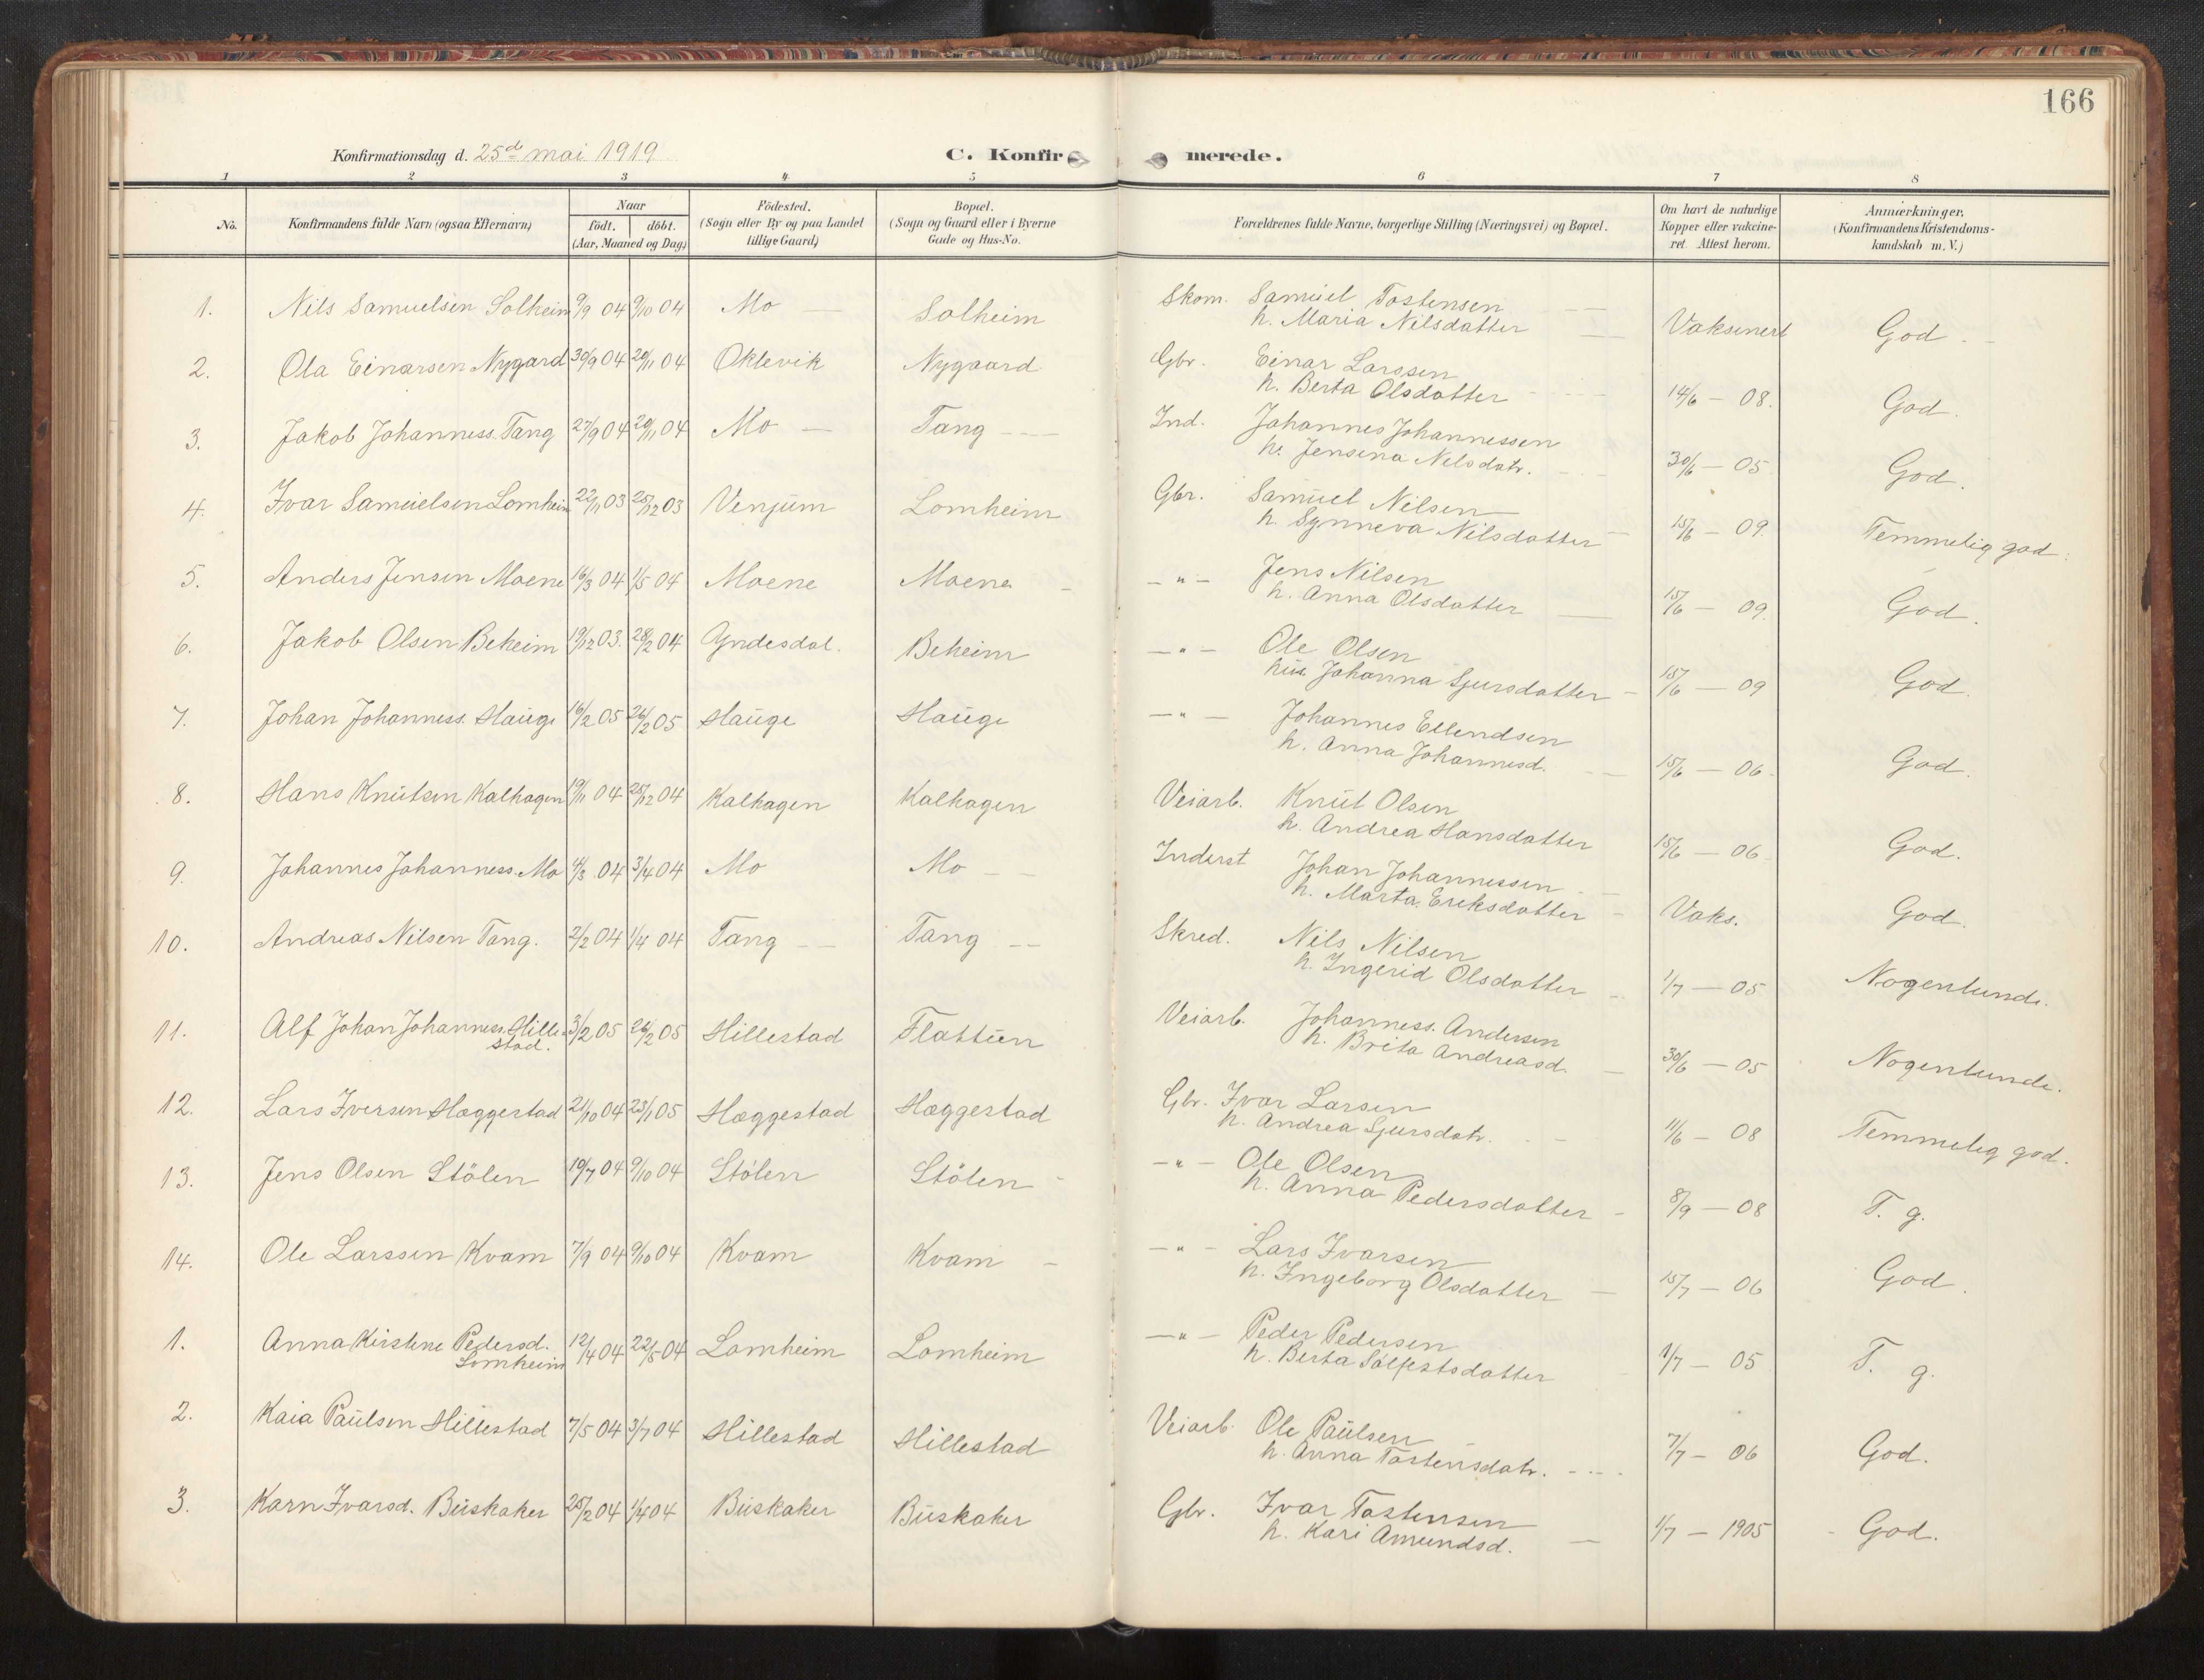 166
Konfirmationsdag d. 25de mai 1919 C. Konfirmerede.
1 2 3 4 5 6 7 8
No. Konfirmandens fulde Navn (ogsaa Efternavn) Naar födt. döbt. (Aar, Maaned og Dag) Födested. (Sogn eller By og paa Landet tillige Gaard) Bopæl. (Sogn og Gaard eller i Byerne Gade og Hus-No. Forældrenes fulde Navne, borgerlige Stilling (Næringsvei) og Bopæl. Om havt de naturlige Kopper eller vakcineret. Attest herom. Anmærkninger. (Konfirmandens Kristendomskundskab m. V.)
1. Nils Samuelsen Solheim 9/9 04 9/10 04 Mo — Solheim Skom. Samuel Tostensen
h. Maria Nilsdatter Vaksinert God
2. Ola Einarsen Nygard 30/9 04 20/11 04 Oklevik Nygaard Gbr. Einar Larssen
h. Berta Olsdatter 14/6 — 08. God.
3. Jakob Johanness. Tang 27/9 04 20/11 04 Mo — Tang Ind. Johannes Johannessen
h. Jensina Nilsdatr. 30/6 — 05 God.
4. Ivar Samuelsen Lomheim 22/11 03 25/12 03 Venjum Lomheim Gbr. Samuel Nilsen
h. Synneva Nilsdatter 15/6 — 09. Temmelig god.
5. Anders Jensen Moene 16/3 04 1/5 04 Moene Moene — " — Jens Nilsen
h. Anna Olsdatter 15/6 — 09. God.
6. Jakob Olsen Beheim 19/12 03. 28/2 04 Yndesdal. Beheim — " — Ole Olsen
hus. Johanna Sjursdatter 15/6 — 09 God.
7. Johan Johanness. Hauge 16/2 05 26/2 05 Hauge Hauge — " — Johannes Ellendsen
h. Anna Johannesd. 15/6 — 06. God.
8. Hans Knutsen Kalhagen 19/11 04 25/12 04 Kalhagen Kalhagen Veiarb. Knut Olsen
h. Andrea Hansdatter 15/6 — 06. God.
9. Johannes Johanness. Mo 4/3 04 3/4 04 Mo Mo Inderst Johan Johannessen
h. Marta Ereksdatter Vaks. God.
10. Andreas Nilsen Tang. 2/2 04 1/4 04 Tang Tang Skred. Nils Nilsen
h. Ingerid Olsdatter 1/7 — 05 Nogenlunde.
11. Alf Johan Johanness. Hille-
stad. 3/2 05 26/2 05 Hillestad Flattun Veiarb. Johanness. Andersen
h. Brita Andreasd. 30/6 — 05 Nogenlunde.
12. Lars Iversen Hæggestad 21/10 04 23/1 05 Hæggestad Hæggestad Gbr. Ivar Larsen
h. Andrea Sjursdatr. 11/6 — 08 Temmelig god.
13. Jens Olsen Stölen 19/7 04 9/10 04 Stölen Stölen — " — Ole Olsen
h. Anna Pedersdatter 8/9 — 08 T. g.
14. Ole Larssen Kvam 7/9 04 9/10 04 Kvam Kvam — " — Lars Ivarsen
h. Ingeborg Olsdatter 15/7 — 06 God.
1. Anna Kirstene Pedersd.
Lomheim 12/4 04 22/5 04 Lomheim Lomheim — " — Peder Pedersen
h. Berta Sölfestsdatter 1/7 — 05 T. g.
2. Kaia Paulsen Hillestad 7/5 04 3/7 04 Hillestad Hillestad Veiarb. Ole Paulsen
h. Anna Tostensdatr. 7/7 — 06 God.
3. Karn Ivarsd. Buskaker 25/2 04 1/4 04 Buskaker Buskaker Gbr. Ivar Tostensen
h. Kari Amundsd. 1/7 — 1905 God.